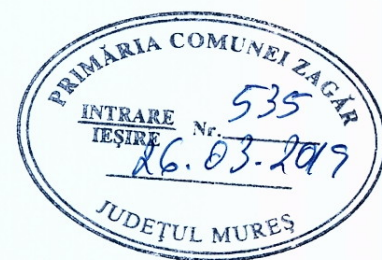 PRIMĂRIA COMUNEI ZAGĂR
INTRARE
IEȘIRE Nr. 535
26.03.2019
JUDEȚUL MUREȘ